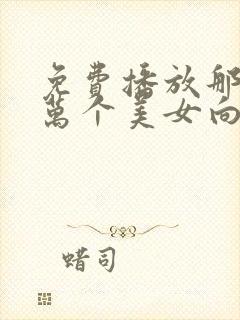 免費播放那
萬个美女向
蜡司